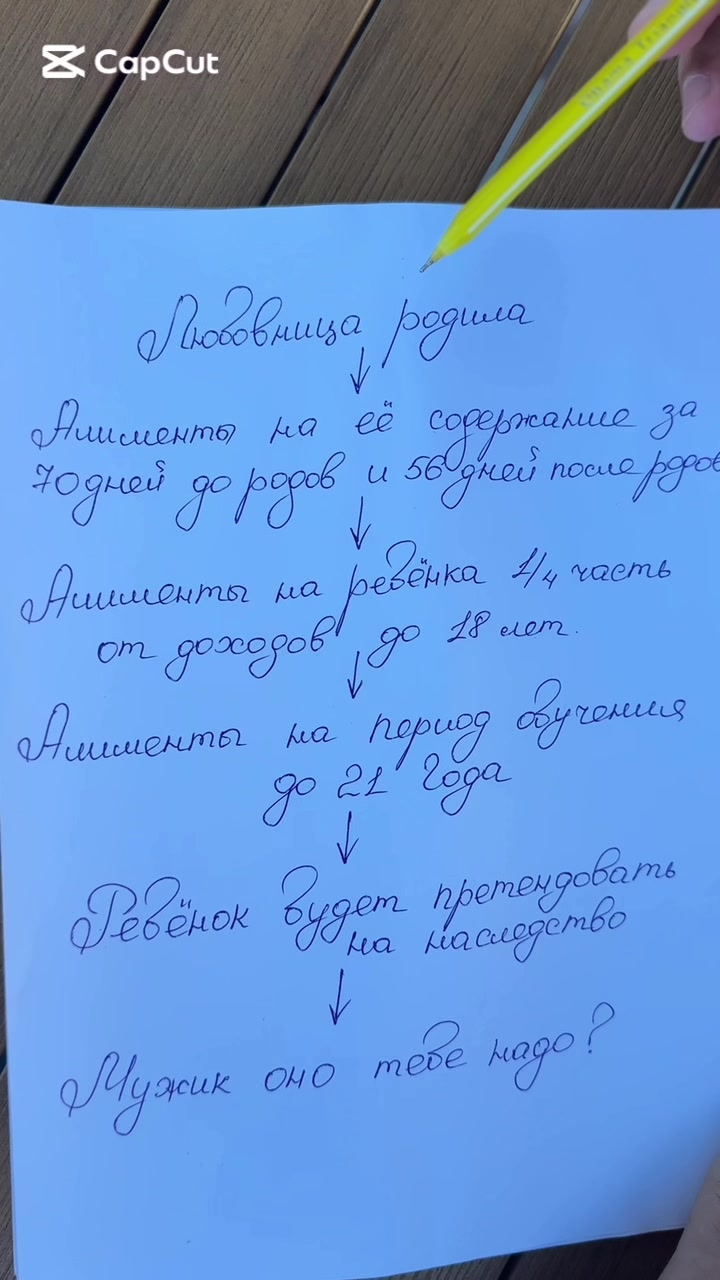 CapCut
Любовница родила
Алименты на её содержание за
70 дней до родов и 56 дней после родов
Алименты на ребёнка 1/4 часть
от доходов до 18 лет.
Алименты на период обучения
до 21 года
Ребёнок будет претендовать
на наследство
Мужик оно тебе надо?